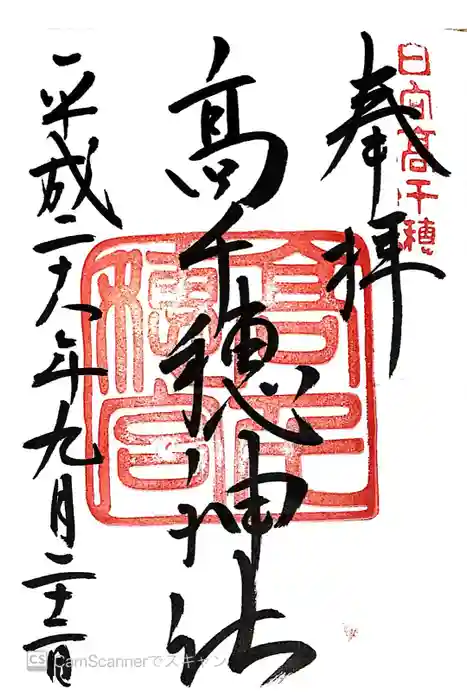 日向高千穂
奉拝
高千穂神社
高千
穂宮
平成二十八年九月二十二日
CS CamScannerでスキャン